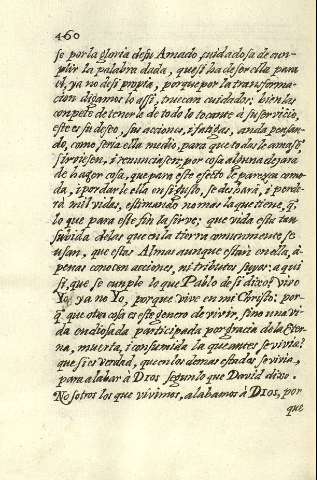 460
se por la gloria de su Amado, cuidadosa de cum-
plir la palabra dada, que si ha de ser ella para
el, ya no de si propia, porque por la transforma-
cion digamos lo assi, truecan cuidados; bien las
compete de tenerlo de todo lo tocante à su servicio,
este es su deseo, sus acciones, i fatigas, anda pensan-
do, como seria ella medio, para que todas le amassẽ,
sirviesen, i reverenciasen; por cosa alguna dejarà
de hazer cosa, que para este efecto le parezca como-
da, i por darle ella un gusto, se desharà, i perde-
rà mil vidas, estimando no mas la que tiene, q̃
lo que para este fin la sirve; que vida esta tan
subida de las que en la tierra comunmente, se
usan, que estas Almas aunque estàn en ella, à
penas conocen acciones, ni tributos suyos; aqui
si, que se cumple lo que Pablo de si dixo? vivo
Yo, ya no Yo, porque vive en mi Christo; por-
q̃ que otra cosa es este genero de vivir, sino una vi-
da endiosada participada por gracia de la Eter-
na, muerta, i consumida la que antes se vivia?
que si es verdad, que en los demas estados se vivia,
para alabar à DIOS segun lo que David dixo.
Nosotros los que vivimos, alabamos à DIOS, por
que